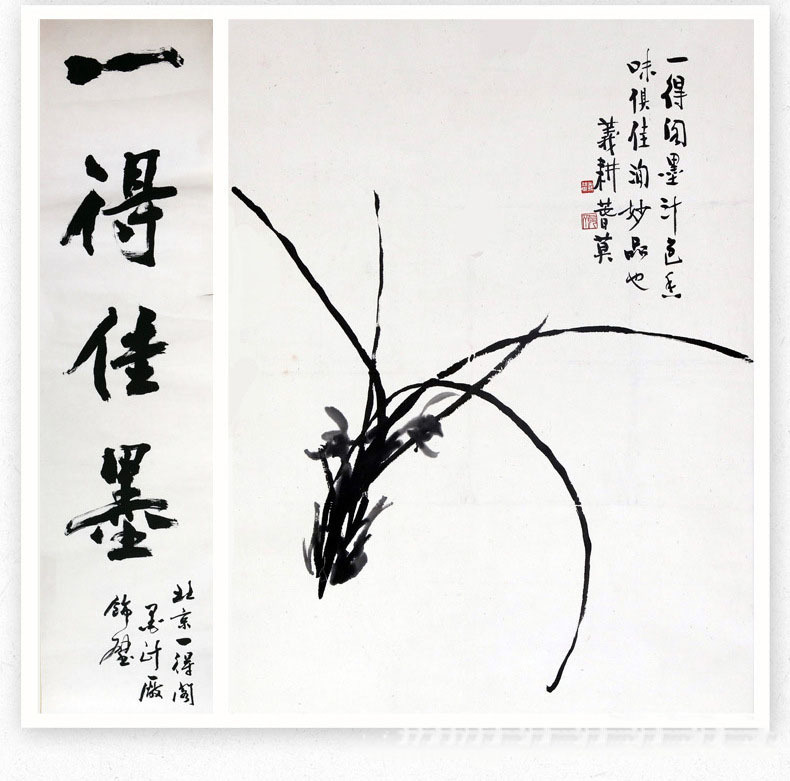 一得佳墨
北京一得阁
墨汁厰
飾壁
一得阁墨汁色香
味俱佳洵妙品也
義耕
莫